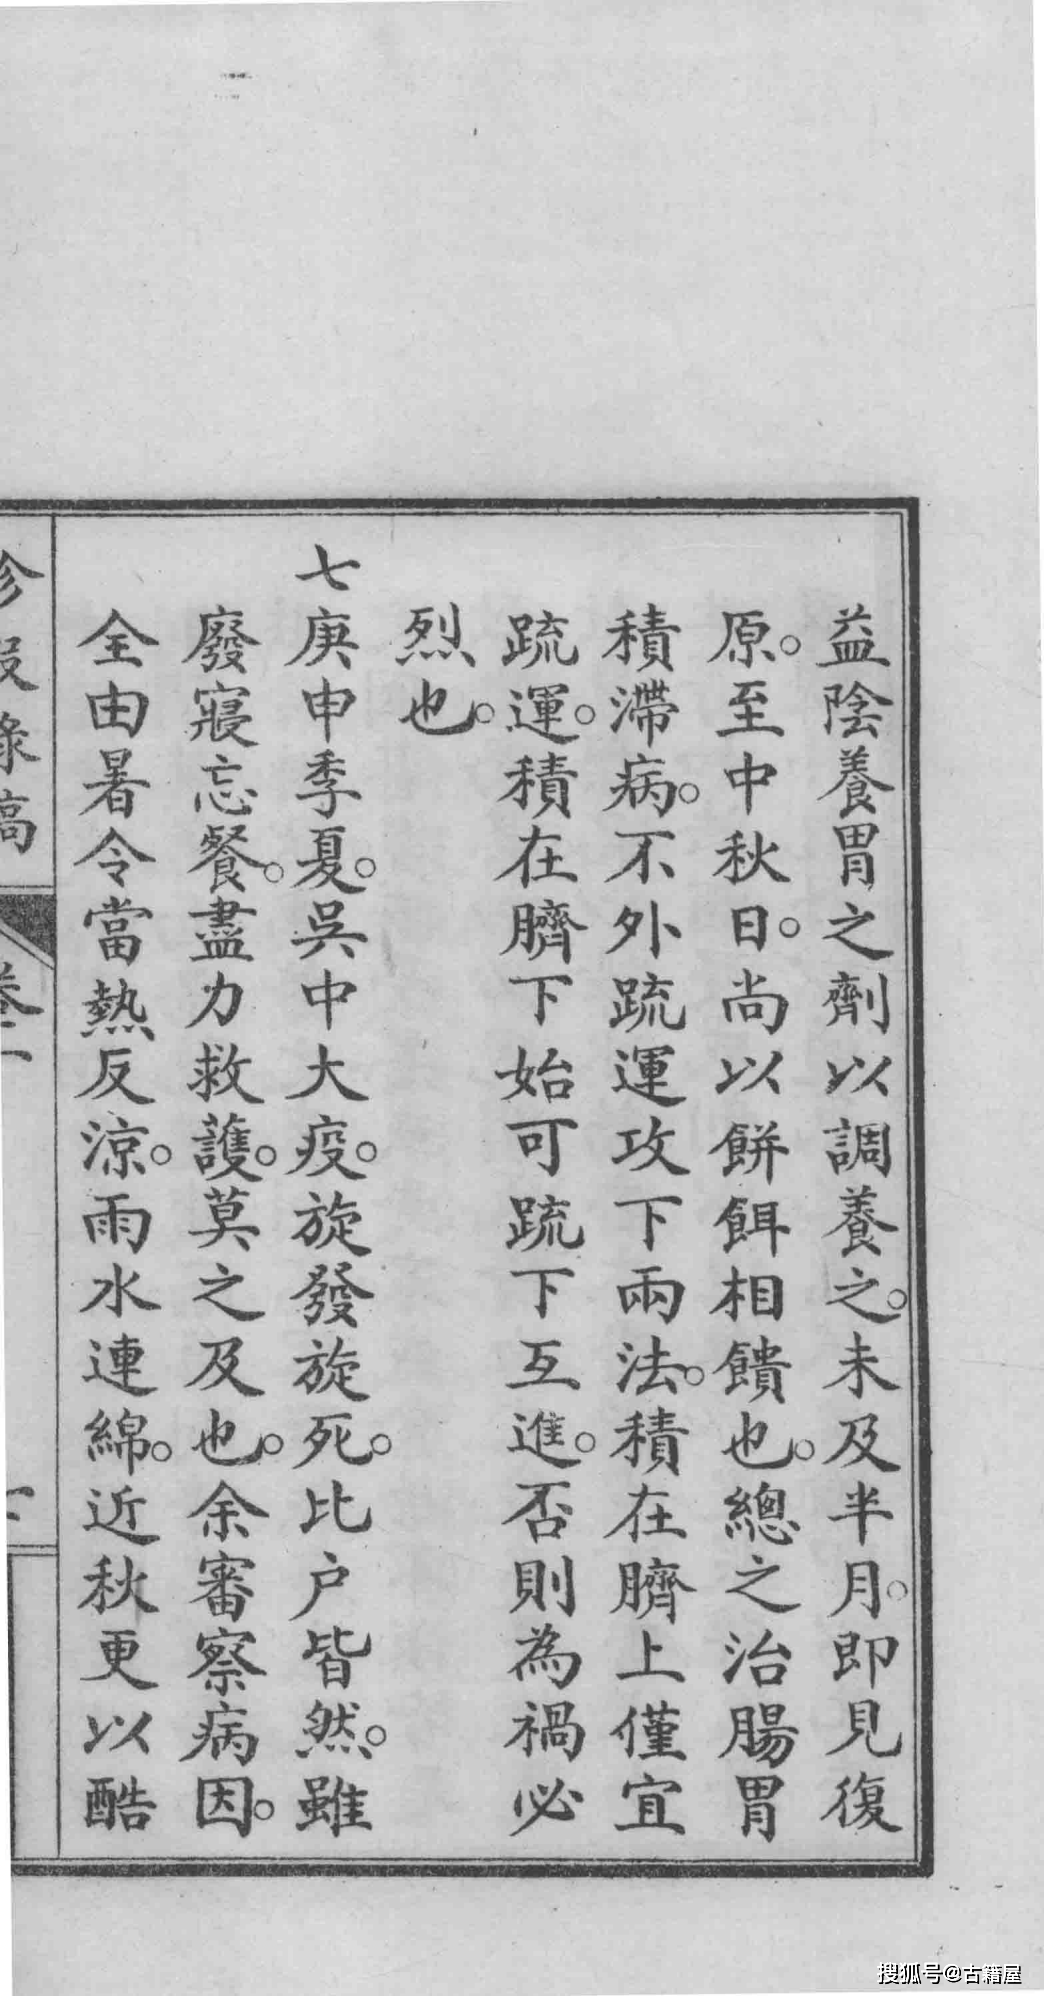 益陰養胃之劑以調養之。未及半月。即見復
原。至中秋日。尚以餅餌相饋也。總之治腸胃
積滯病。不外疏運攻下兩法。積在臍上僅宜
疏運。積在臍下始可疏下互進。否則為禍必
烈也。
七庚申季夏。吳中大疫。旋發旋死。比户皆然。雖
廢寢忘餐。盡力救護。莫之及也。余審察病因。
全由暑令當熱反涼。雨水連綿。近秋更以酷
搜狐号@古籍屋